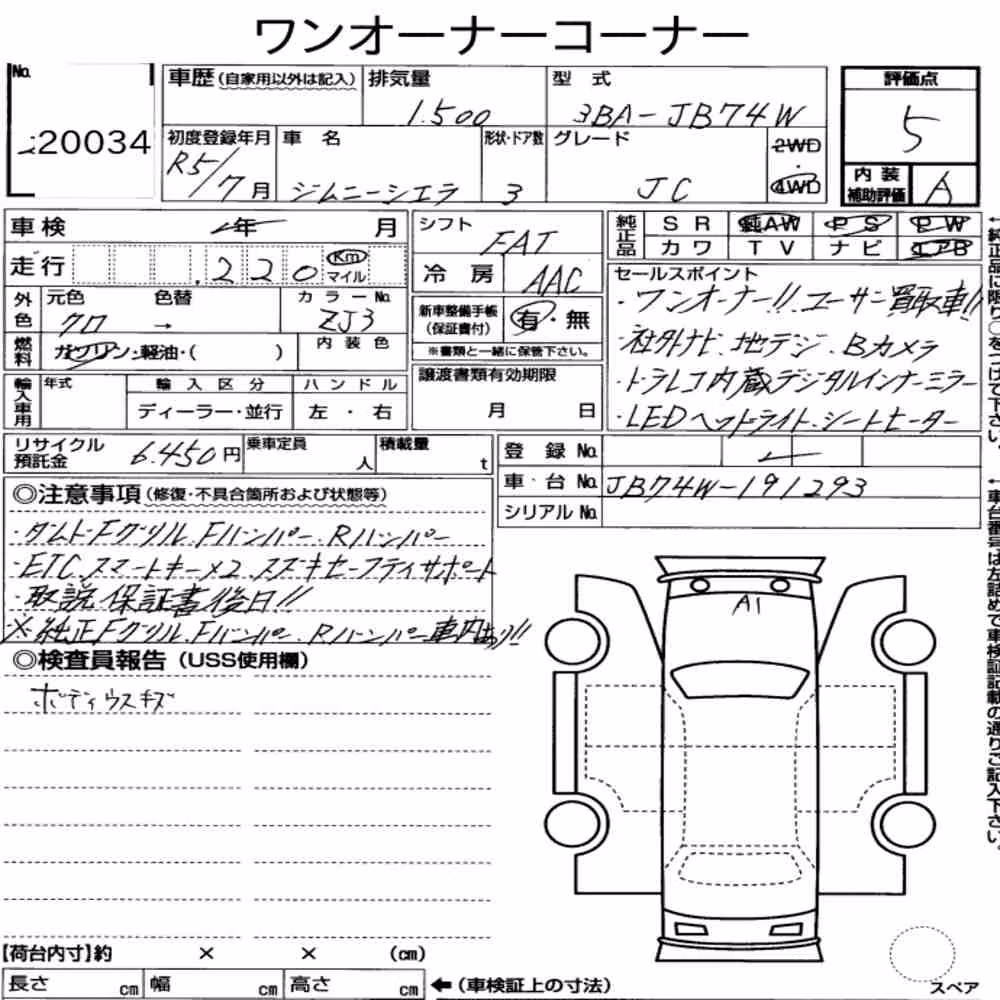 ワンオーナーコーナー
No.
20034
車歴(自家用以外は記入)
排気量
1.500
型 式
3BA-JB74W
評価点
5
初度登録年月
R5/7月
車 名
ジムニーシエラ
形状・ドア数
3
グレード
JC
2WD
4WD
内 装
補助評価
A
車検 年 月
走行 .220 Km マイル
シフト
FAT
冷 房
AAC
純正品
SR 純AW PS PW
カワ TV ナビ エアB
外色
元色 色替
クロ →
カラーNo.
ZJ3
燃料
ガソリン・軽油・( )
内 装 色
新車整備手帳
(保証書付)
有・無
※書類と一緒に保管下さい。
セールスポイント
・ワンオーナー!! ユーザー買取車!!
・社外ナビ、地デジ、Bカメラ
・ドラレコ内蔵デジタルインナーミラー
・LEDヘッドライト、シートヒーター
輸入車用
年式
輸 入 区 分
ディーラー・並行
ハ ン ド ル
左 ・ 右
譲渡書類有効期限
月 日
リサイクル
預託金
6.450円
乗車定員
人
積載量
t
登 録 No.
車 台 No. JB74W-191293
シリアル No.
◎注意事項(修復・不具合箇所および状態等)
・ダムドFグリル、Fバンパー、Rバンパー
・ETC、スマートキー×2、スズキセーフティサポート
・取説 保証書後日!!
※純正Fグリル、Fバンパー、Rバンパー車内あり!!
◎検査員報告(USS使用欄)
ボディウスキズ
A1
【荷台内寸】約 × × (cm)
長さ cm 幅 cm 高さ cm
←(車検証上の寸法)
スペア
←純正品に限り○をつけて下さい。
←車台番号は左詰めで車検証記載の通りご記入下さい。